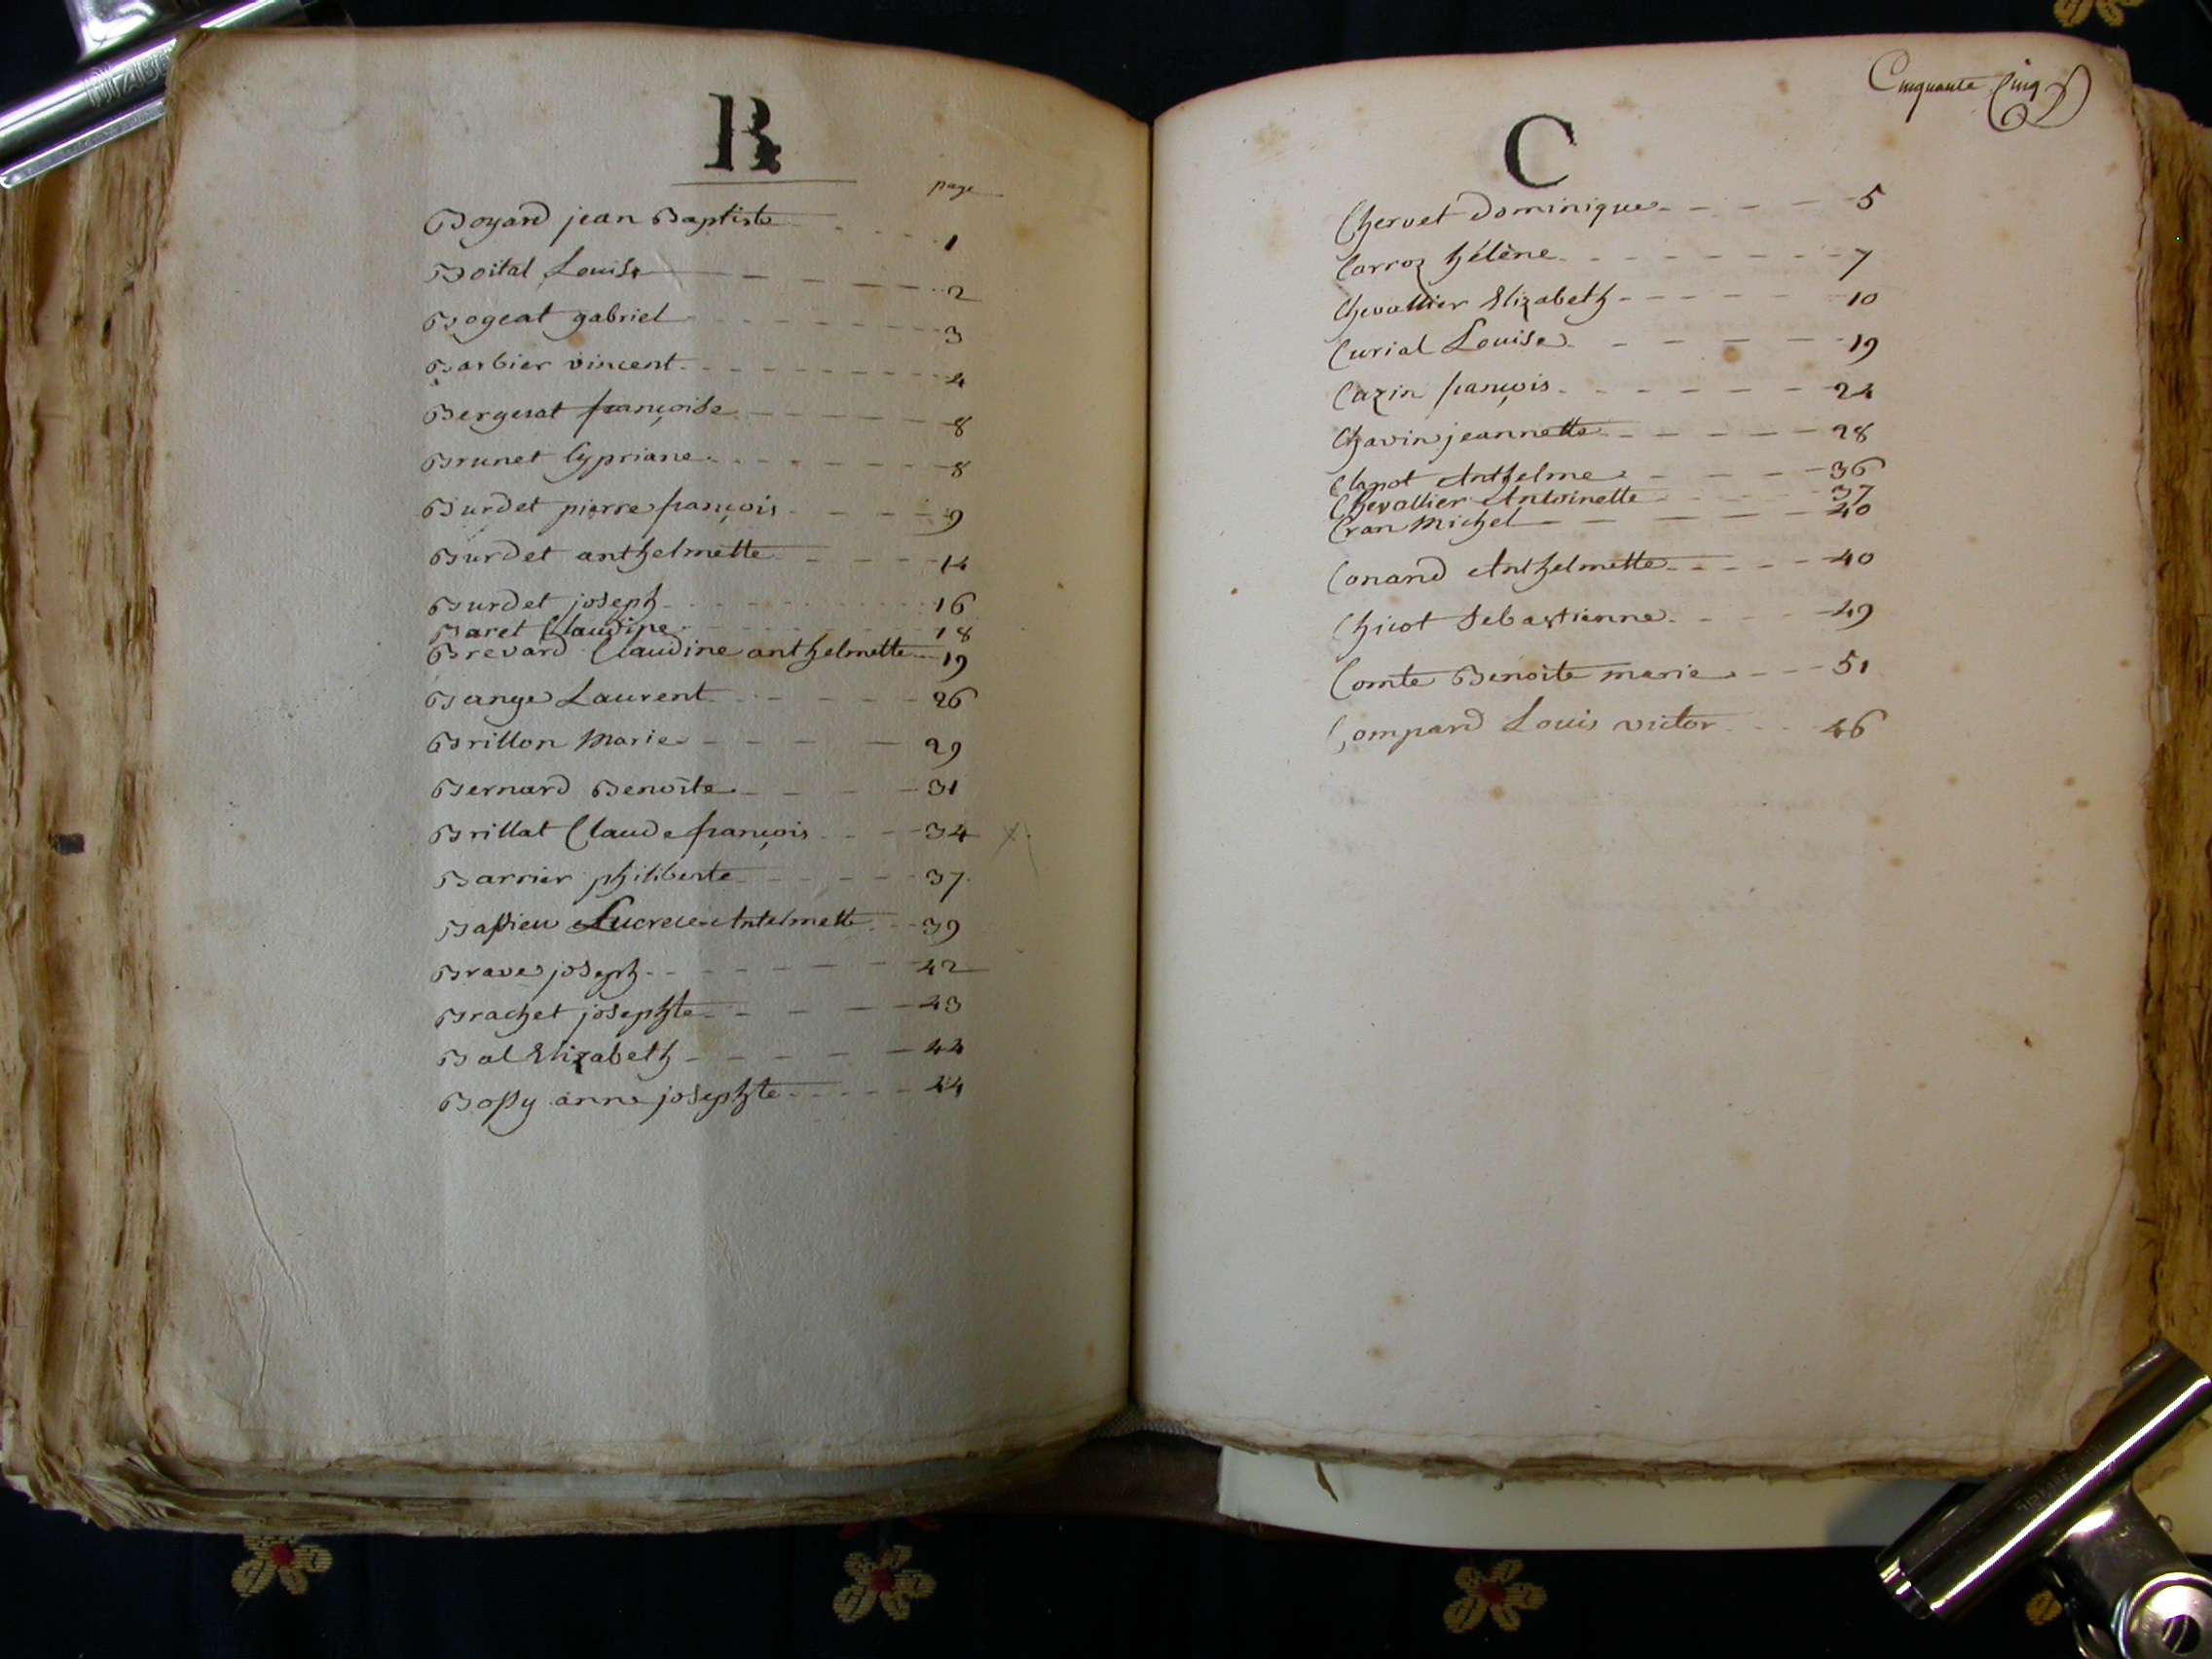 B
page
Boyard jean Baptiste 1
Boital Louise 2
Bogeat gabriel 3
Barbier vincent 4
Bergerat françoise 8
Brunet Cypriane 8
Burdet pierre françois 9
Burdet anthelmette 14
Burdet joseph 16
Baret Claudine 18
Brevard Claudine anthelmette 19
Bange Laurent 26
Brillon Marie 29
Bernard Benoite 31
Brillat Claude françois 34
Barrier philiberte 37
Bassieu Lucrece Antelmette 39
Brave joseph 42
Brachet josephte 43
Bal Elizabeth 44
Bossy anne josephte 44
Cinquante Cinq
C
Chervet Dominique 5
Carroz hélène 7
Chevallier Elizabeth 10
Curial Louise 19
Cazin françois 24
Chavin jeannette 28
Clapot Anthelme 36
Chevallier Antoinette 37
Cran Michel 40
Conand Anthelmette 40
Chicot Sebastienne 49
Comte Benoite marie 51
Compard Louis victor 46